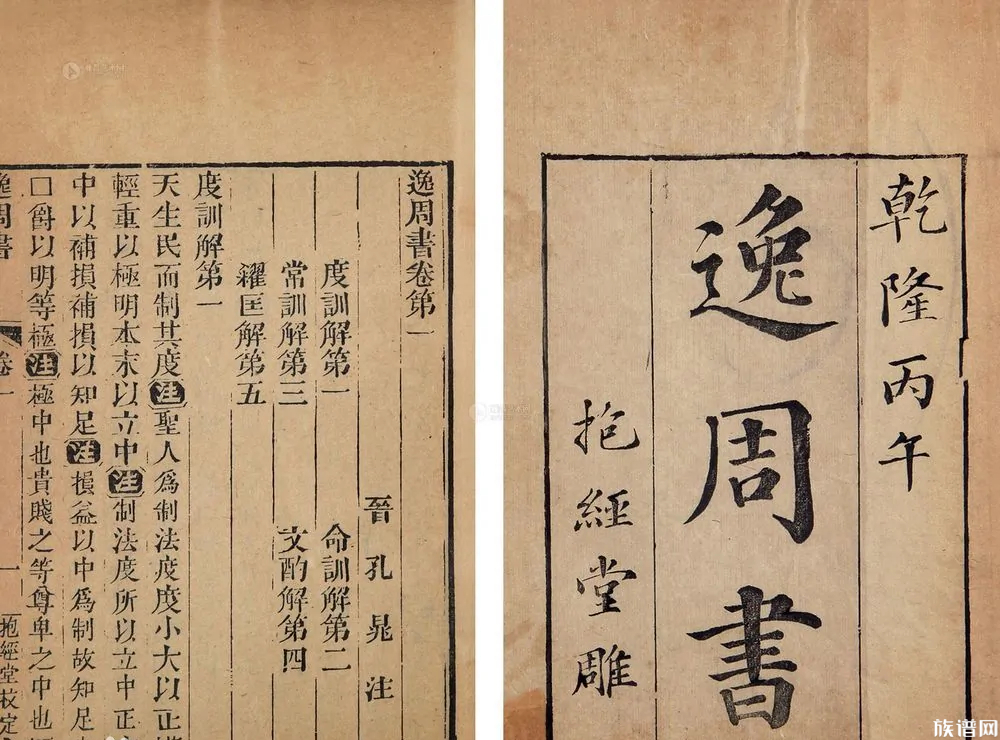 乾隆丙午
逸周書
抱經堂雕
逸周書卷第一
晉孔晁注
度訓解第一 命訓解第二
常訓解第三 文酌解第四
糴匡解第五
度訓解第一
天生民而制其度注聖人爲制法度度小大以正
輕重以極明本末以立中注制法度所以立中正
中以補損補損以知足注損益以中爲制故知足
□爵以明等極注極中也貴賤之等尊卑之中也
逸周書 卷一 一 抱經堂校定
族谱网